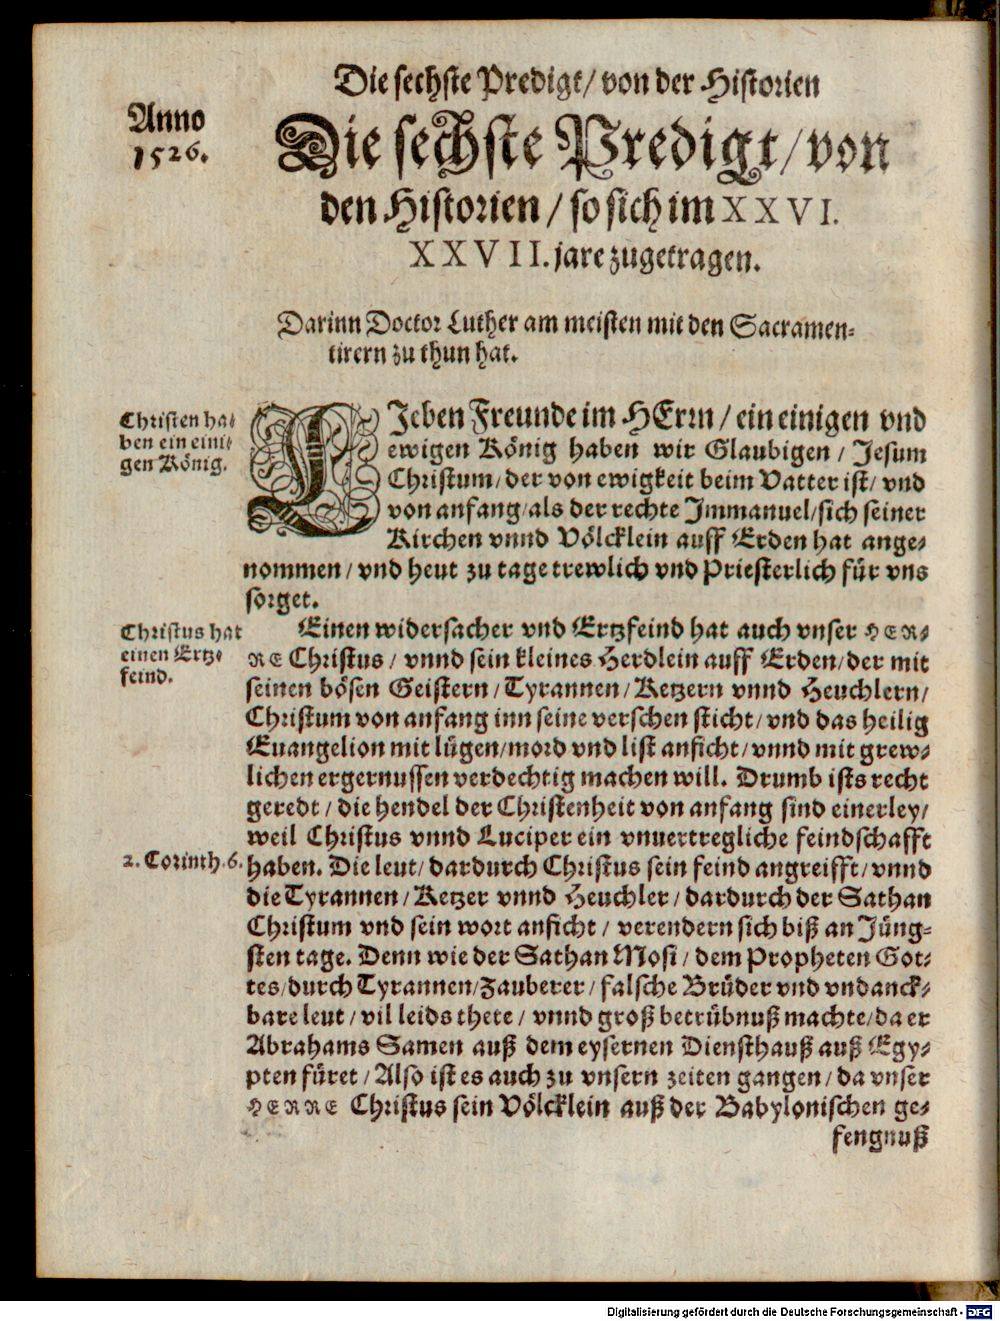 Die sechste Predigt/ von der Historien
Anno
1526.
Die sechste Predigt/ von
den Historien/ so sich im XXVI.
XXVII. jare zugetragen.
Darinn Doctor Luther am meisten mit den Sacramen-
tirern zu thun hat.
Christen ha-
ben ein eini-
gen König.
LJeben Freunde im HErrn/ ein einigen vnd
ewigen König haben wir Glaubigen/ Jesum
Christum/ der von ewigkeit beim Vatter ist/ vnd
von anfang/ als der rechte Jmmanuel/ sich seiner
Kirchen vnnd Völcklein auff Erden hat ange-
nommen/ vnd heut zu tage trewlich vnd Priesterlich für vns
sorget.
Christus hat
einen Ertz-
feind.
Einen widersacher vnd Ertzfeind hat auch vnser HER-
RE Christus/ vnnd sein kleines Herdlein auff Erden/ der mit
seinen bösen Geistern/ Tyrannen/ Ketzern vnnd Heuchlern/
Christum von anfang inn seine verschen sticht/ vnd das heilig
Euangelion mit lügen/ mord vnd list anficht/ vnnd mit grew-
lichen ergernussen verdechtig machen will. Drumb ists recht
geredt/ die hendel der Christenheit von anfang sind einerley/
weil Christus vnnd Luciper ein vnuertregliche feindschafft
2. Corinth. 6.
haben. Die leut/ dardurch Christus sein feind angreifft/ vnnd
die Tyrannen/ Ketzer vnnd Heuchler/ dardurch der Sathan
Christum vnd sein wort anficht/ verendern sich biß an Jüng-
sten tage. Denn wie der Sathan Mosi/ dem Propheten Got-
tes/ durch Tyrannen/ Zauberer/ falsche Brüder vnd vndanck-
bare leut/ vil leids thete/ vnnd groß betrübnuß machte/ da er
Abrahams Samen auß dem eysernen Diensthauß auß Egy-
pten füret/ Also ist es auch zu vnsern zeiten gangen/ da vnser
HERRE Christus sein Völcklein auß der Babylonischen ge-
fengnuß
Digitalisierung gefördert durch die Deutsche Forschungsgemeinschaft - DFG